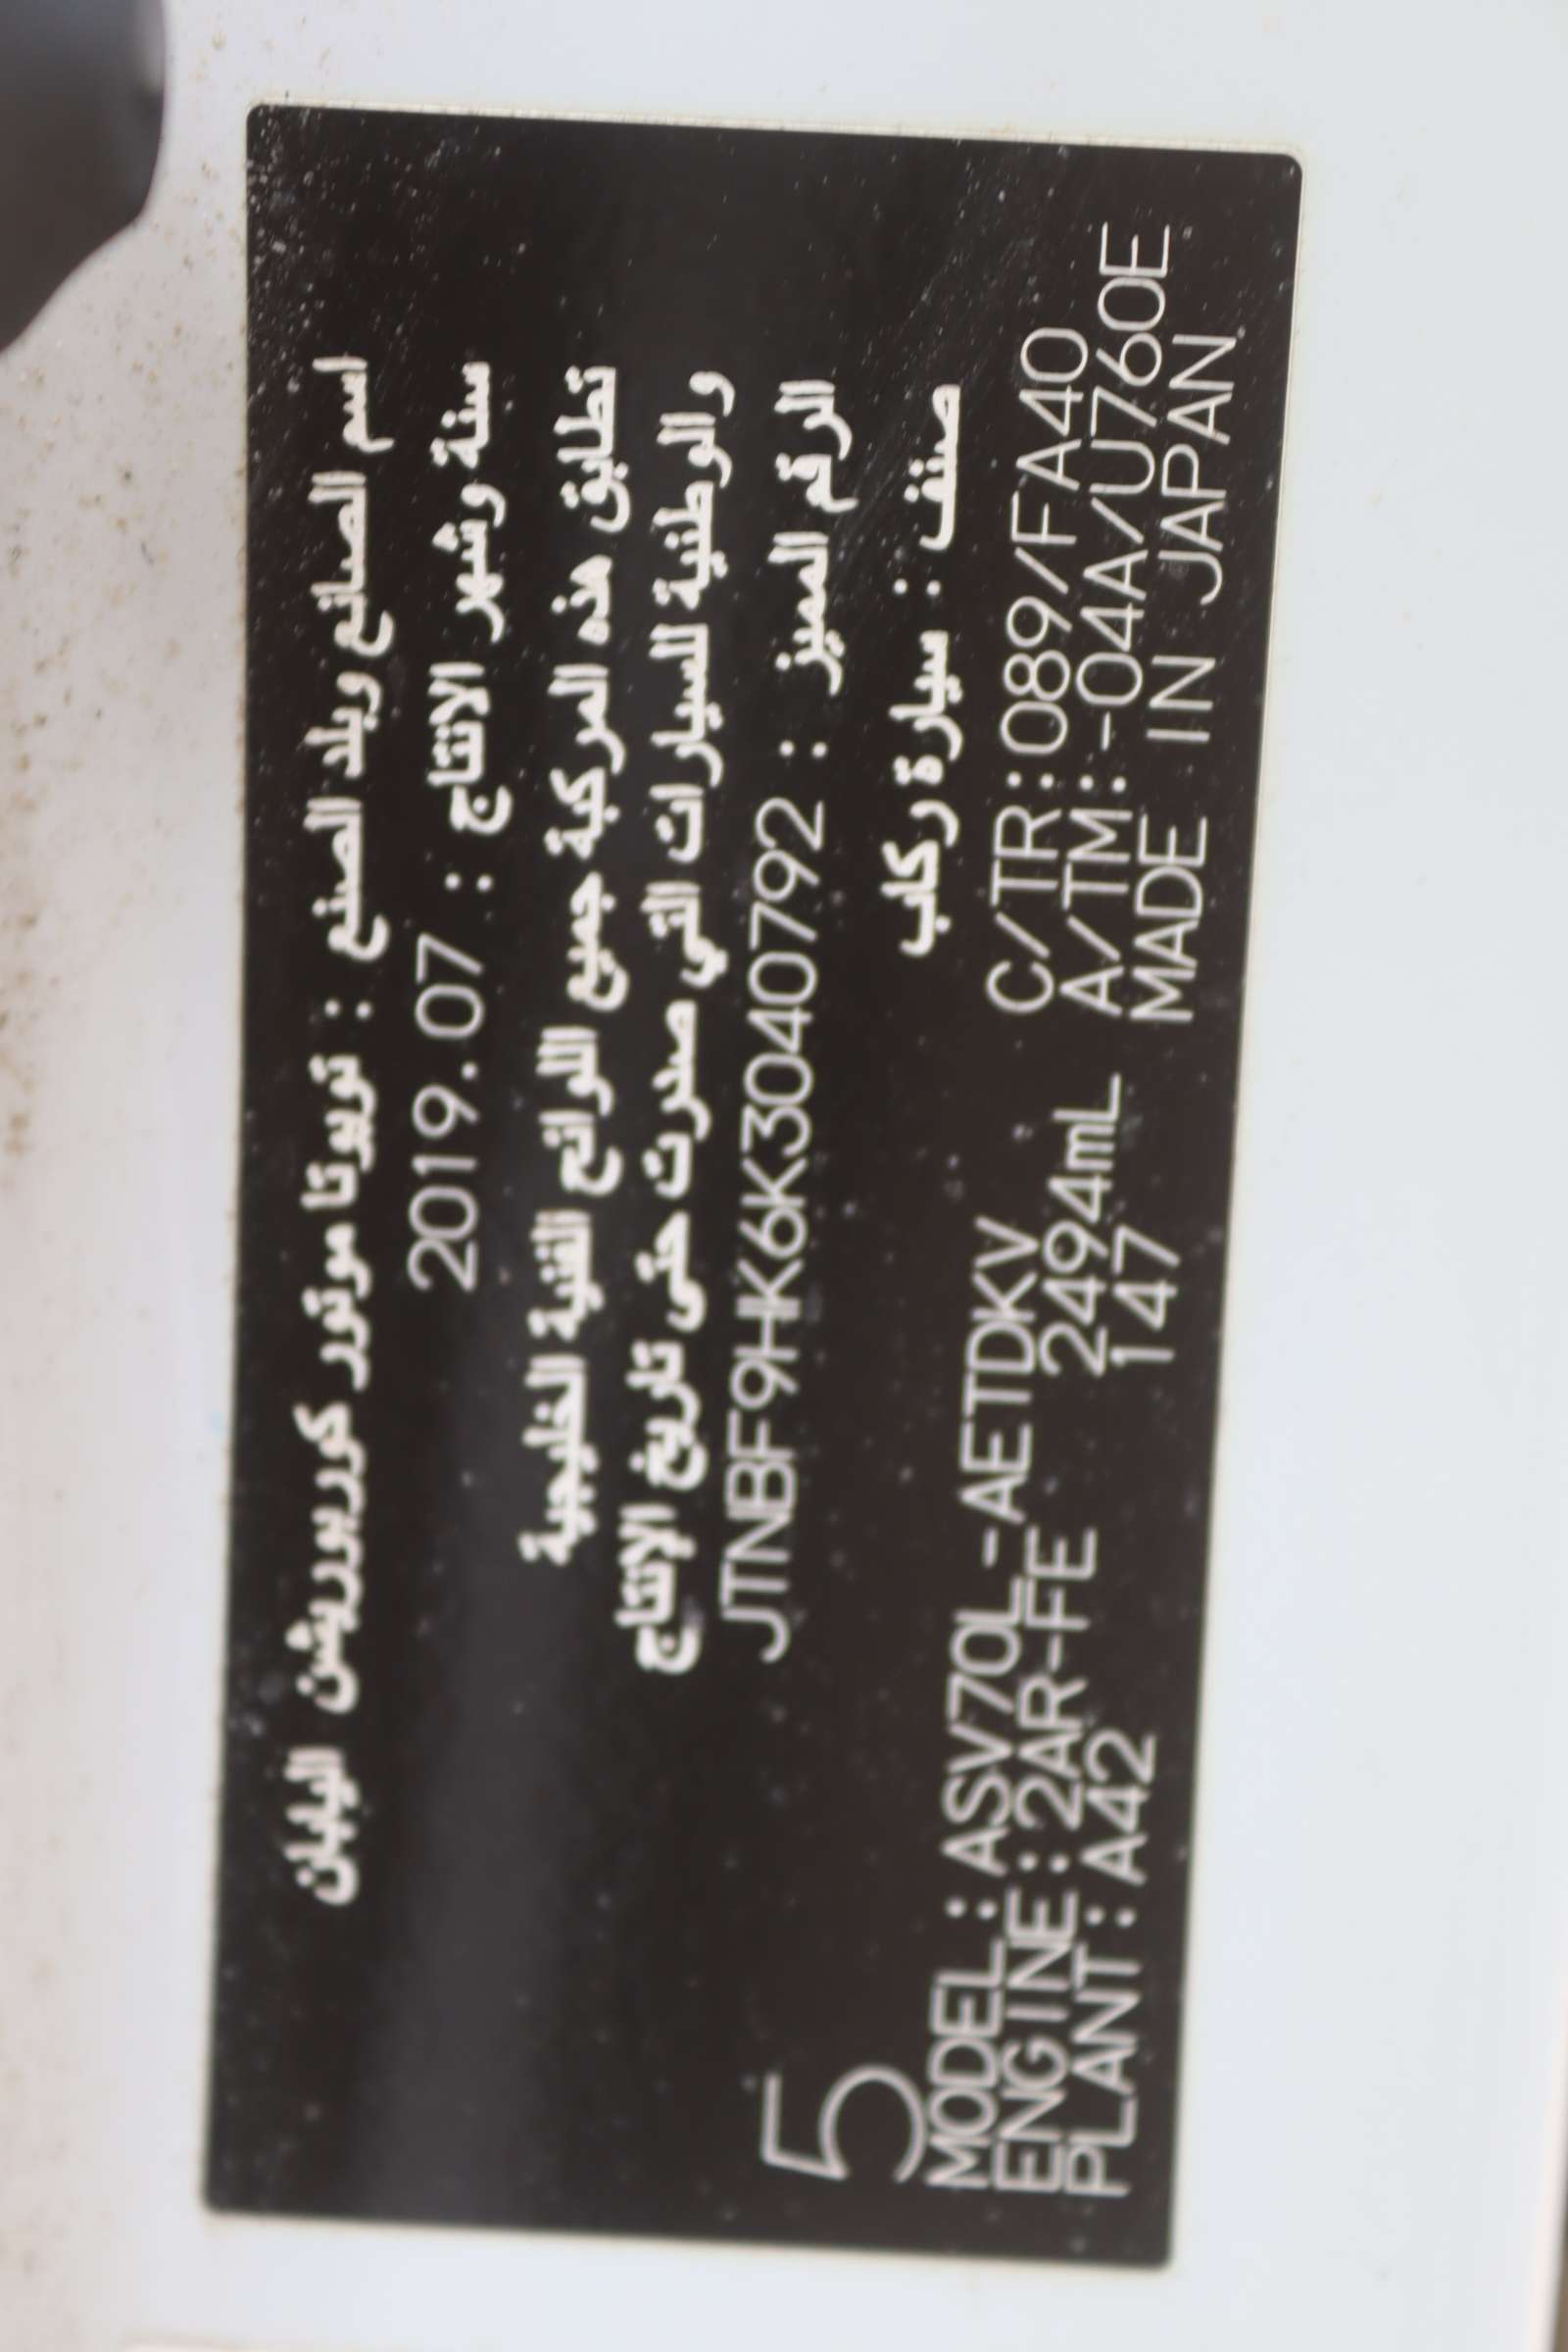 اسم الصانع وبلد الصنع : تويوتا موتور كوربوريشن اليابان
سنة وشهر الانتاج : 2019.07
تطابق هذه المركبة جميع اللوائح الفنية الخليجية
والوطنية للسيارات التي صدرت حتى تاريخ الإنتاج
الرقم المميز : JTNBF9HK6K3040792
صنف : سيارة ركاب
5
MODEL:ASV70L-AETDKV C/TR:089/FA40
ENGINE:2AR-FE 2494mL A/TM:-04A/U760E
PLANT:A42 147 MADE IN JAPAN